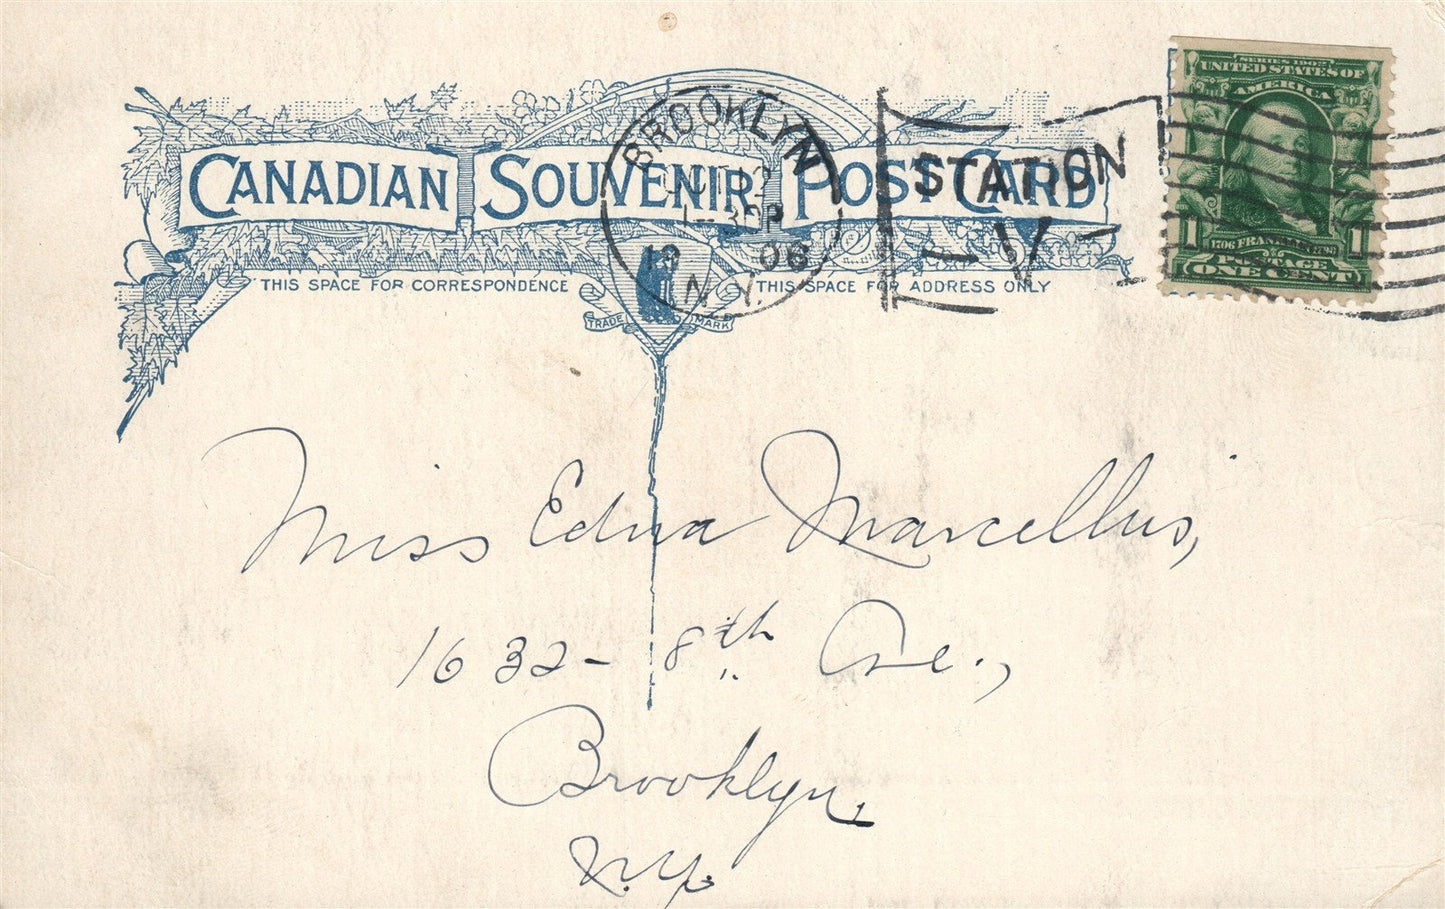 SERIES 1902
UNITED STATES OF
AMERICA
1 1706 FRANKLIN 1790 1
POSTAGE
ONE CENT
BROOKLYN
OCT 12
1906
N.Y.
STATION
V
CANADIAN SOUVENIR POST CARD
THIS SPACE FOR CORRESPONDENCE THIS SPACE FOR ADDRESS ONLY
TRADE MARK
Miss Edna Marcellus,
1632 - 8th Ave.,
Brooklyn,
N.Y.